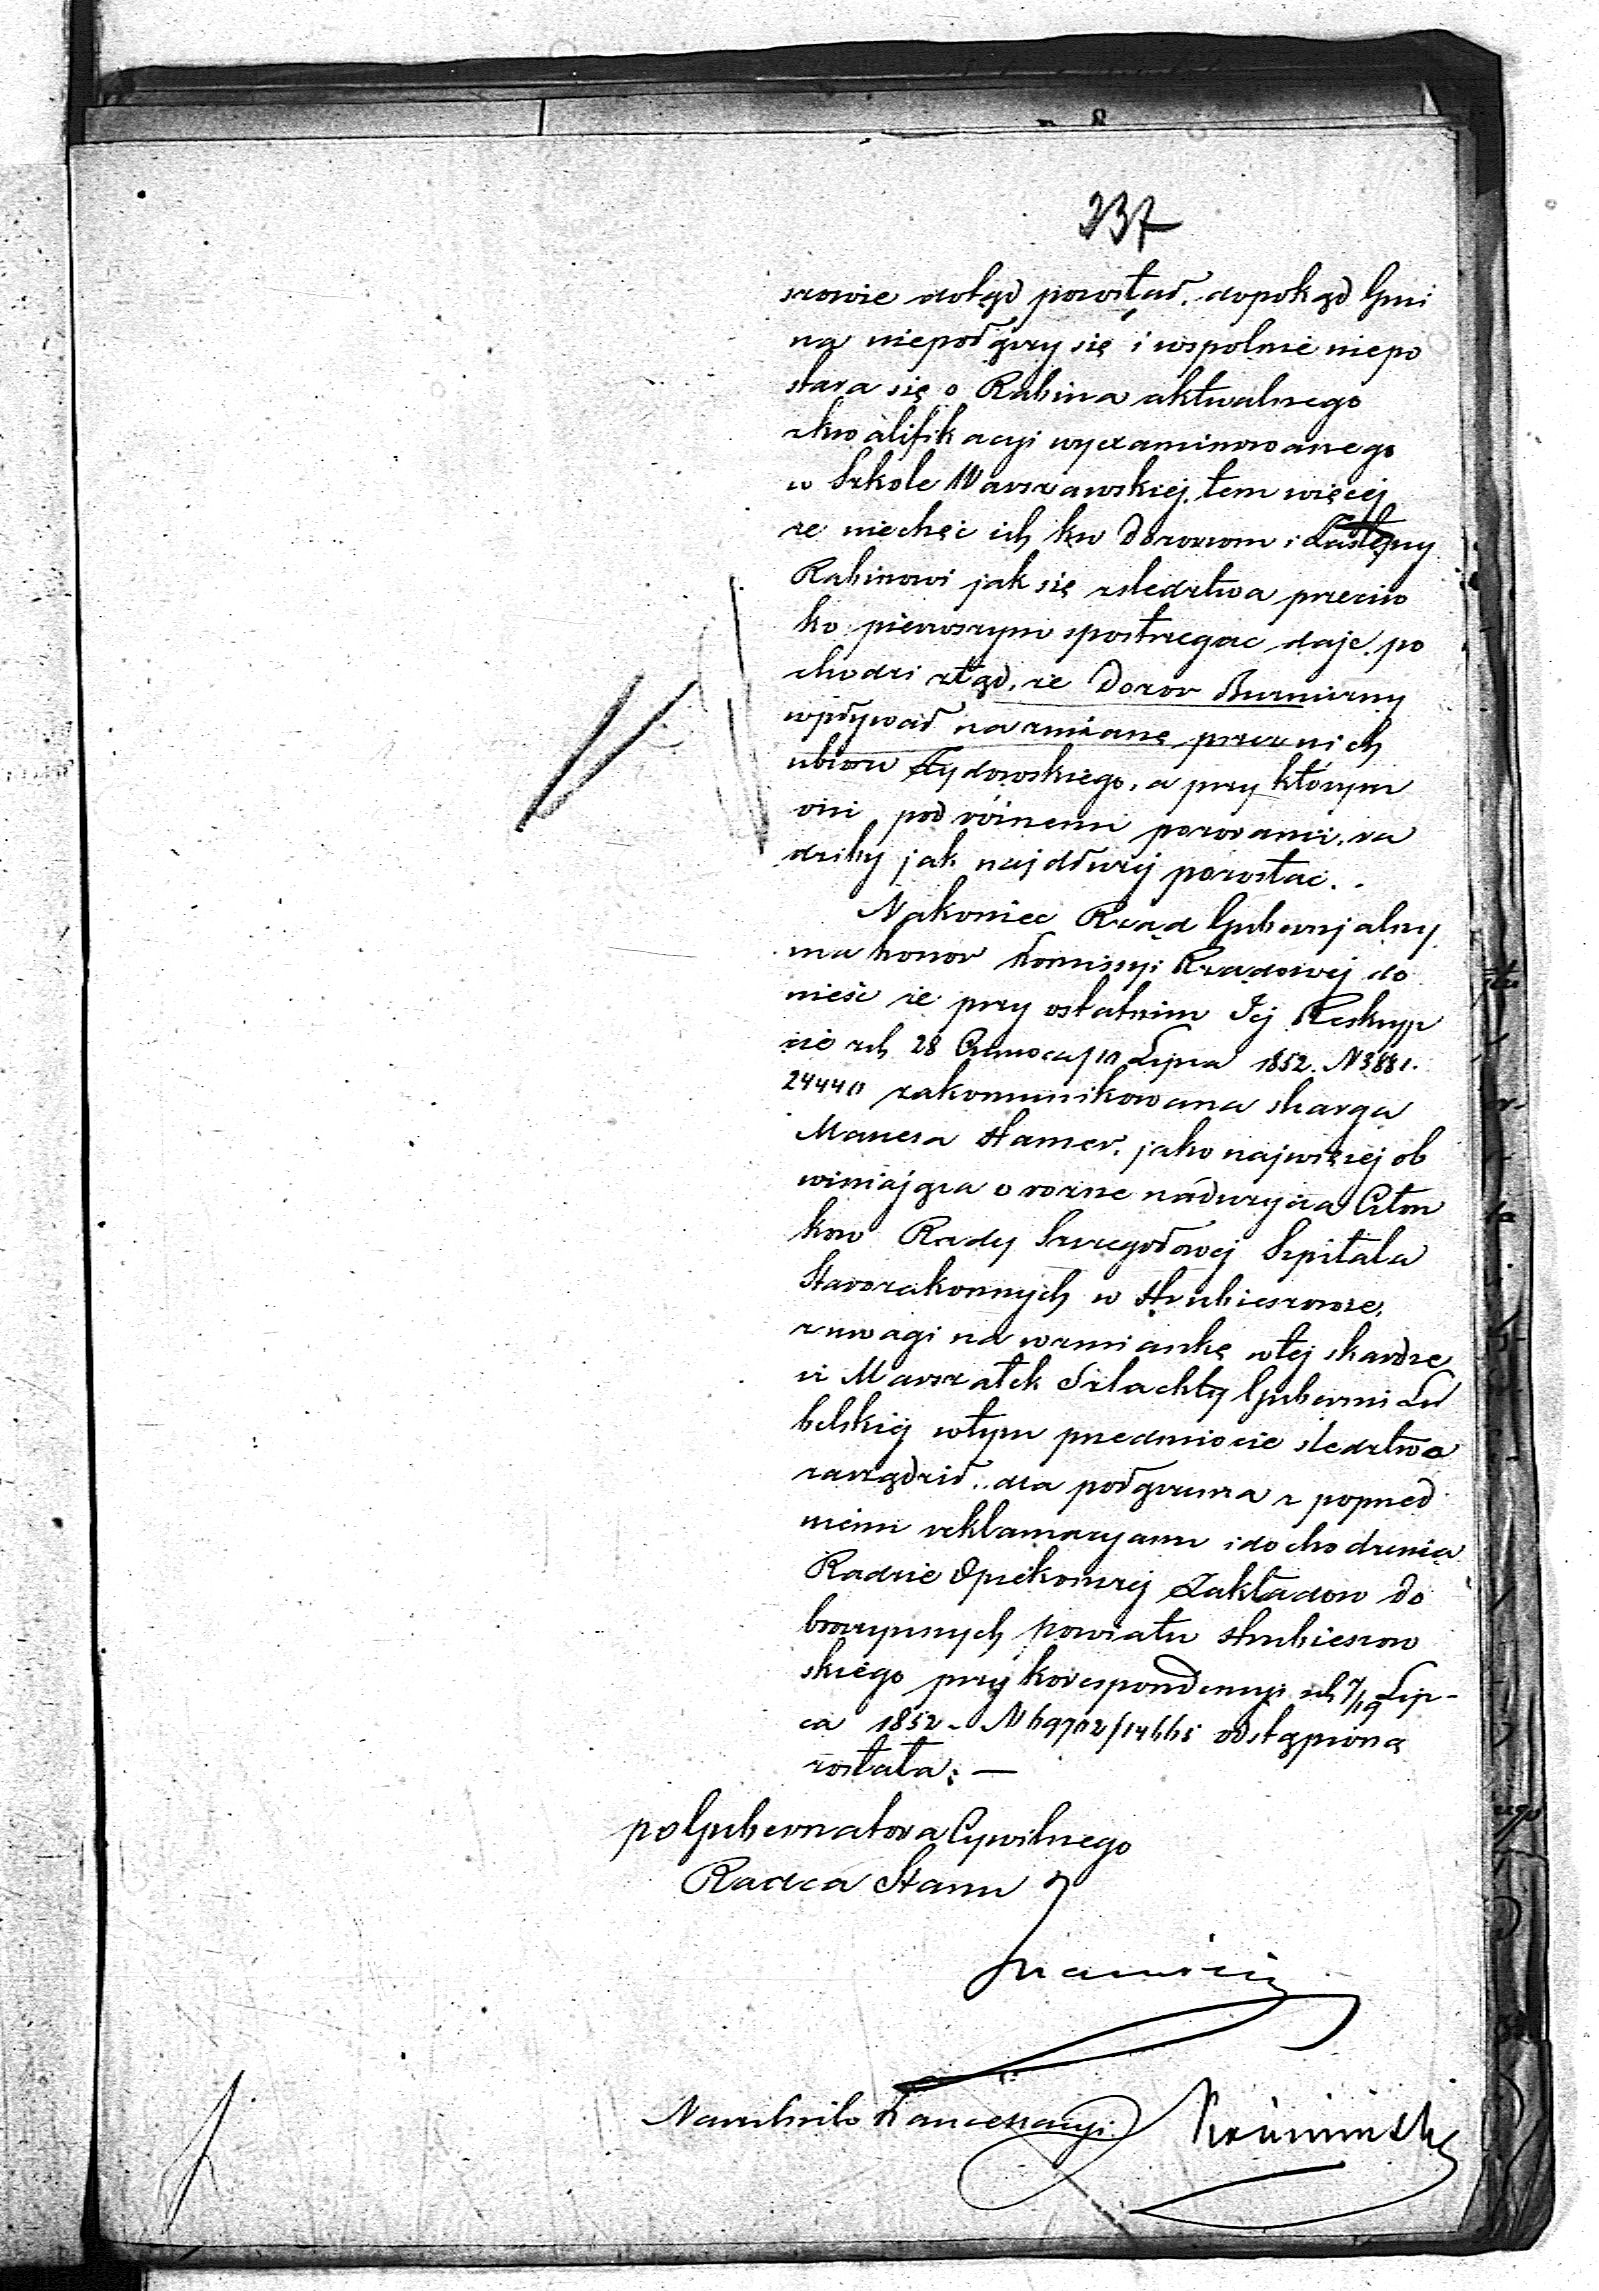 237
szowie dotąd pozostał, dopokąd Gmi
na niepołączy się i wspolnie niepo
stara się o Rabina aktualnego
zkwalifikacyi wyexaminowanego
w Szkole Warszawskiej, tem więcej
ze niechęć ich ku Dozorom i Zastępcy
Rabinowi jak się zsledztwa przeciw
ko pierwszym spostrzegac daje, po
chodzi ztąd, ze Dozor Bużniczny
wpływał na zmianę przez nich
ubioru Żydowskiego, a przy którym
oni pod róznemi pozorami, ra
dziby jak najdłużej pozostac.
Nakoniec Rząd Gubernjalny
ma honor Kommissyi Rządowej do
nieść ze przy ostatnim Jej Reskryp
cie zd. 28 Czerwca/10 Lipca 1852. N 3881.
24440 zakomunikowana skarga
Manesa Hamer, jako najwięcej ob
winiająca o rozne naduzycia Człon
kow Rady Szczegołowej Szpitala
Starozakonnych w Hrubieszowie,
z uwagi na wzmiankę wtej skardze
iz Marszałek Szlachty Gubernii Lu
belskiej wtym przedmiocie sledztwo
zarządził, dla połączenia z poprzed
niemi reklamacyami i dochodzenia
Radzie Opiekunczej Zakładow Do
broczynnych Powiatu Hrubieszow
skiego przy korrespondencyi zd. 7/19 Lip-
ca 1852. N 69702/14665 odstąpioną
została. —
po Gubernatora Cywilnego
Radca Stanu
Naczelnik Kancellaryi